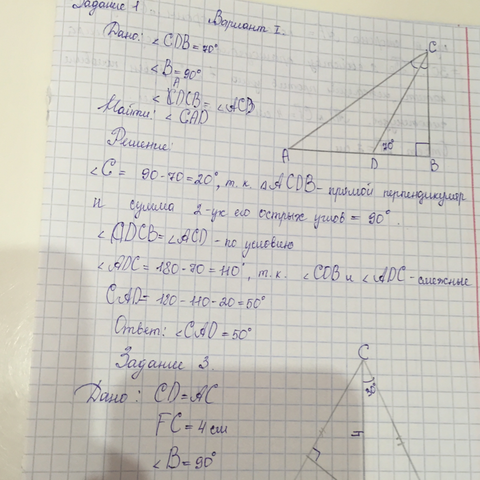 Задание 1
Вариант I.
Дано: ∠CDB = 70°
∠B = 90°
∠DCB = ∠ACD
Найти: ∠CAD
Решение:
C
A
D
70°
B
∠C = 90-70=20°, т.к. △CDB - прямой перпендикуляр
и сумма 2-ух его острых углов = 90°.
∠DCB = ∠ACD - по условию
∠ADC = 180-70 = 110°, т.к. ∠CDB и ∠ADC - смежные
CAD = 180-110-20=50°
Ответ: ∠CAD = 50°
Задание 3.
Дано: CD = AC
FC = 4 см
∠B = 90°
C